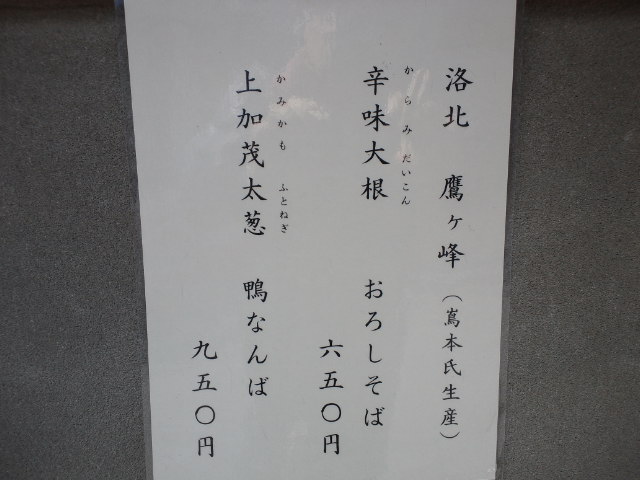 洛北　鷹ヶ峰（嶌本氏生産）
からみだいこん
辛味大根　おろしそば
六五〇円
かみかも　ふとねぎ
上加茂太葱　鴨なんば
九五〇円